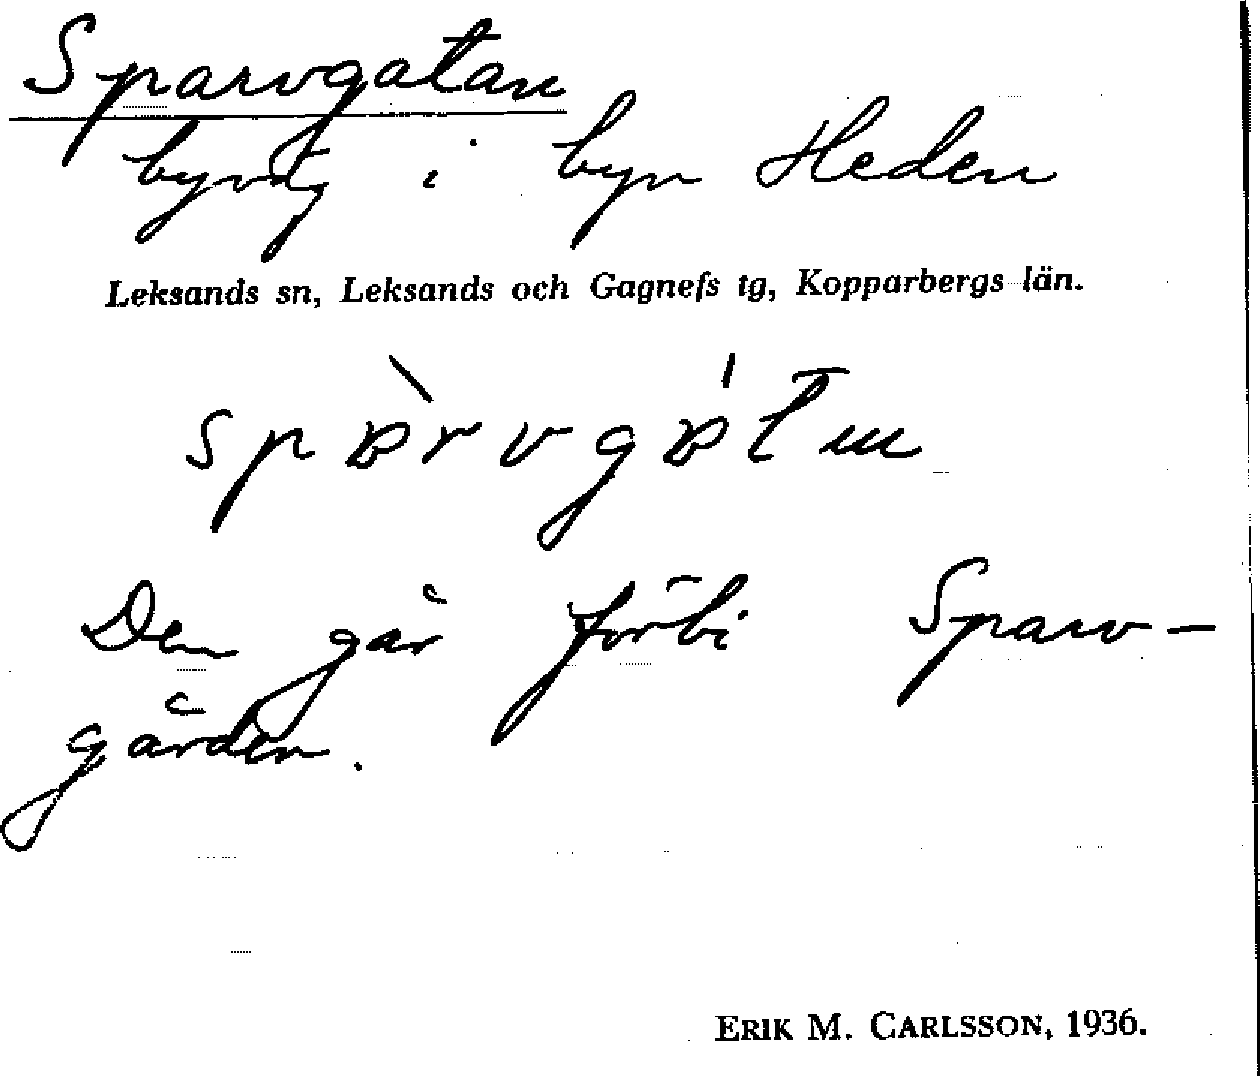 Sparvgatan
byväg i byn Heden
Leksands sn, Leksands och Gagnefs tg, Kopparbergs län.
spɒ̀rvgɒ́tm
Den går förbi Sparv-
gården.
ERIK M. CARLSSON, 1936.